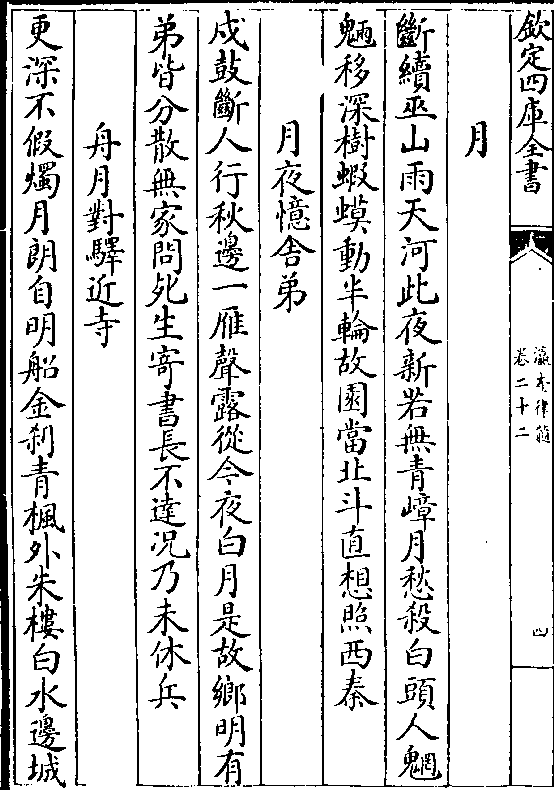 欽定四庫全書
瀛奎律髓
卷二十二
四
月
斷續巫山雨天河此夜新若無青嶂月愁殺白頭人魍
魎移深樹蝦蟆動半輪故園當北斗直想照西秦
月夜憶舍弟
戍鼓斷人行秋邊一雁聲露從今夜白月是故鄉明有
弟皆分散無家問死生寄書長不達况乃未休兵
舟月對驛近寺
更深不假燭月朗自明船金刹青楓外朱樓白水邊城